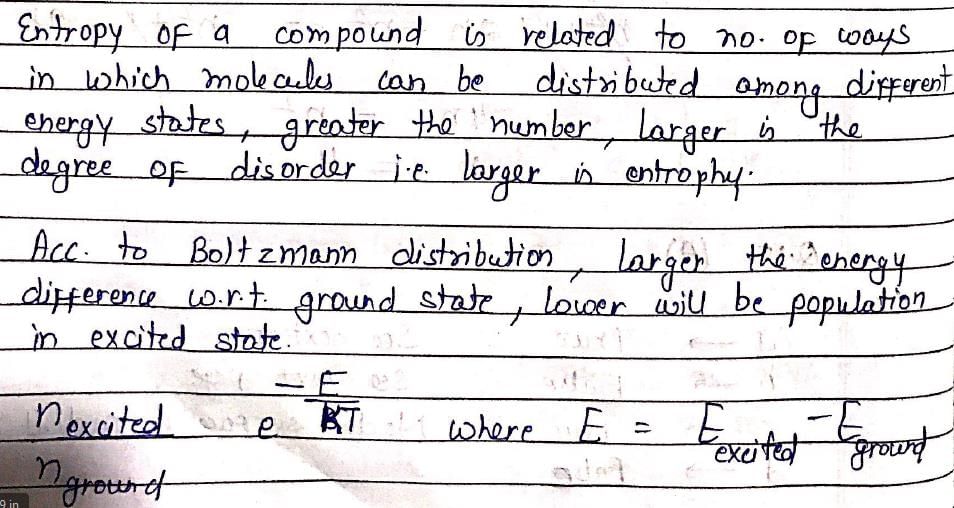 Entropy of a compound is related to no. of ways
in which molecules can be distributed among different
energy states, greater the number, larger is the
degree of disorder i.e. larger is entrophy.
Acc. to Boltzmann distribution, larger the energy
difference w.r.t. ground state, lower will be population
in excited state.
n excited / n ground e -E/KT where E = E excited - E ground
9 in